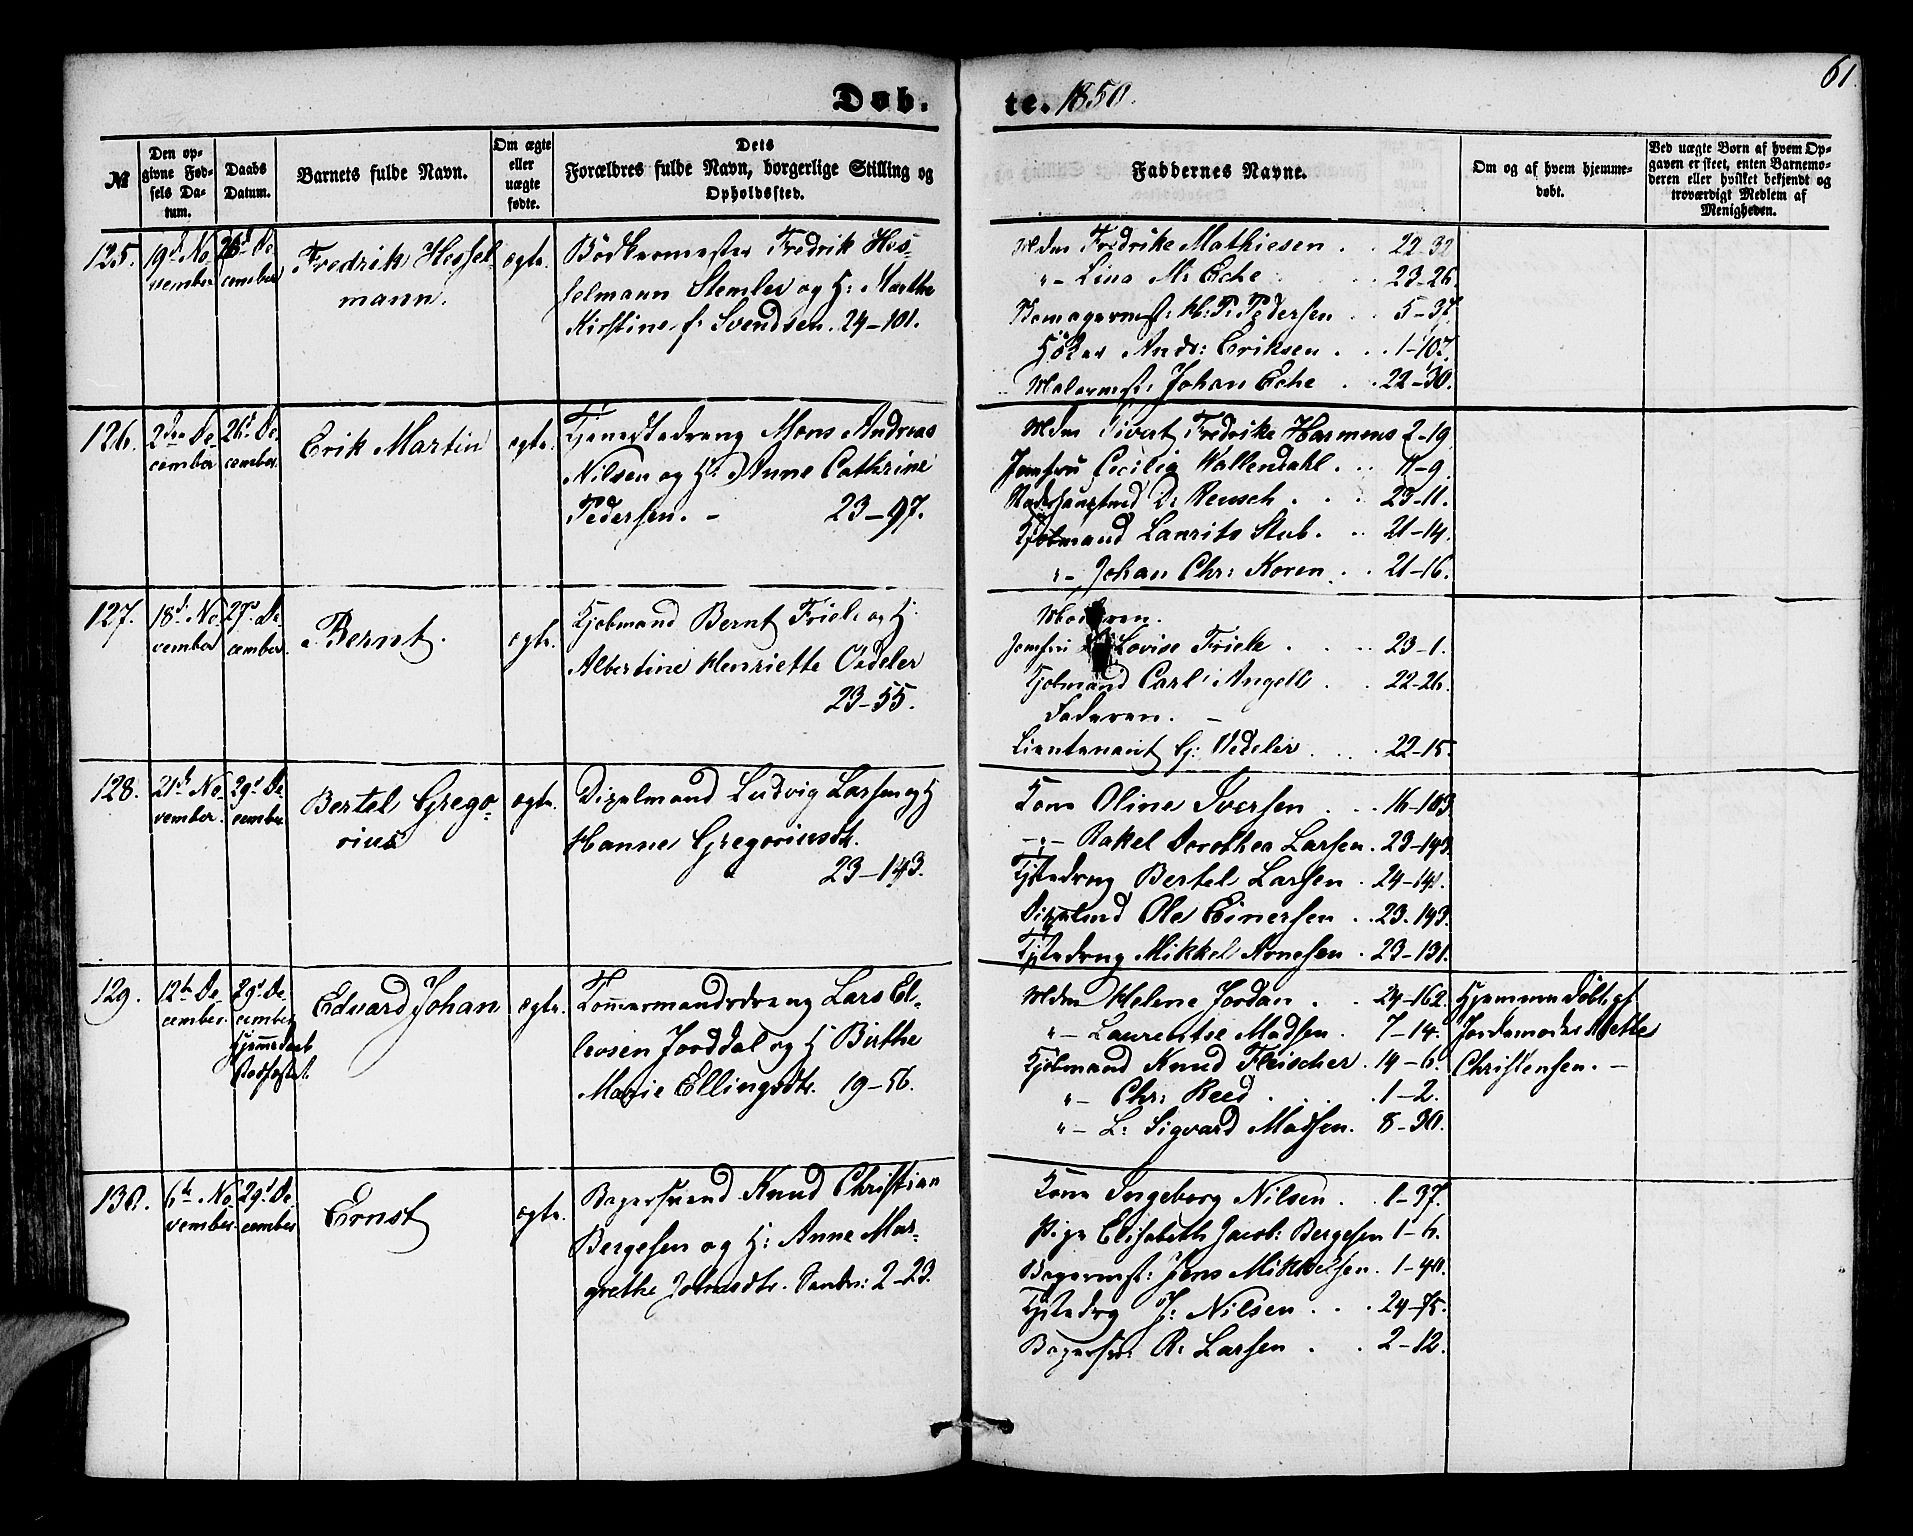 Døb.
te. 1850.
61
№
Den op-
givne Fød-
sels Da-
tum.
Daabs
Datum.
Barnets fulde Navn.
Om ægte
eller
uægte
fødte.
Dets
Forældres fulde Navn, borgerlige Stilling og
Opholdssted.
Faddernes Navne.
Om og af hvem hjemme-
døbt.
Ved uægte Børn af hvem Op-
gaven er skeet, enten Barnemo-
deren eller hvilket bekjendt og
troværdigt Medlem af
Menigheden.
125.
19d No-
vember
26d De-
cember
Fredrik Hessel-
mann.
egte.
Bödkermester Fredrik Hes-
selmann Stemler og H: Marthe
Kirstine f: Svendsen. 24-101.
Mdm Fredrike Mathiesen . . 22-32
"- Lina M: Eche . . 23-26.
H: P: Pedersen . . 5-37.
Höker Andr: Eriksen . . 1-107.
Malermst: Johan Eche . . 22-30.
126.
2den De-
cember
26d De-
cember.
Erik Martin
egte.
Tjenestedreng Mons Andreas
Nilsen og H: Anne Cathrine
Pedersen. - 23-97.
Mdm Sivert Fredrike Harmens 2-19.
Jomfru Cecilia Wallendahl . . 11-9.
Stadshauptmd D: Rensch . . 23-11.
Kjøbmand Laurits Stub. . . 21-14.
"- Johan Chr: Koren . . 21-16.
127.
18d No-
vember
27d De-
cember.
Bernt.
egte.
Kjøbmand Bernt Friele og H:
Albertine Henriette Vedeler
23-55.
Moderen.
Jomfru Lovise Friele . . 23-1.
Kjøbmand Carl Angell . . 22-26.
Faderen. -
Lieutenant G: Vedeler . . 22-15.
128.
21d No-
vember.
29d De-
cember.
Bertel Grego-
rius
egte.
Ludvig Larsen og H
Hanne Gregoriusdt.
23-143.
Kone Oline Iversen . . 16-103.
-"- Rakel Dorothea Larsen . 23-143.
Tjstedrng Bertel Larsen . 24-141.
Ole Einersen . . 23-143.
Tjstedrng Mikkel Arnesen . 23-131.
129.
12te De-
cember.
29d De-
cember
Hjemmedaab
Stadfæstet.
Edvard Johan
egte.
Tömmermandsdreng Lars El-
levsen Jorddal og H Birthe
Marie Ellingsdtr. 19-56.
Mdm Helene Jordan . . 24-162.
"- Laurentse Madsen . 7-14.
Kjøbmand Knud Fleischer . 14-6.
"- Chr: Reed . . 1-2.
"- L: Sigvard Madsen. 8-30.
Hjemmedöbt af
Jordemoder Mette
Christensen. -
130.
6te No-
vember.
29d De-
cember
Ernst
egte.
Bagersvend Knud Christian
Bergesen og H: Anne Mar-
grethe Johnsdtr. Sandv: 2-23.
Kone Ingeborg Nilsen . . 1-37.
Pige Elisabeth Jacob: Bergesen 1-6.
Bagermst: Jens Mikkelsen . 1-40.
Tjstedrg J: Nilsen . . . 24-75.
Bagersv: R: Larsen . . 2-12.